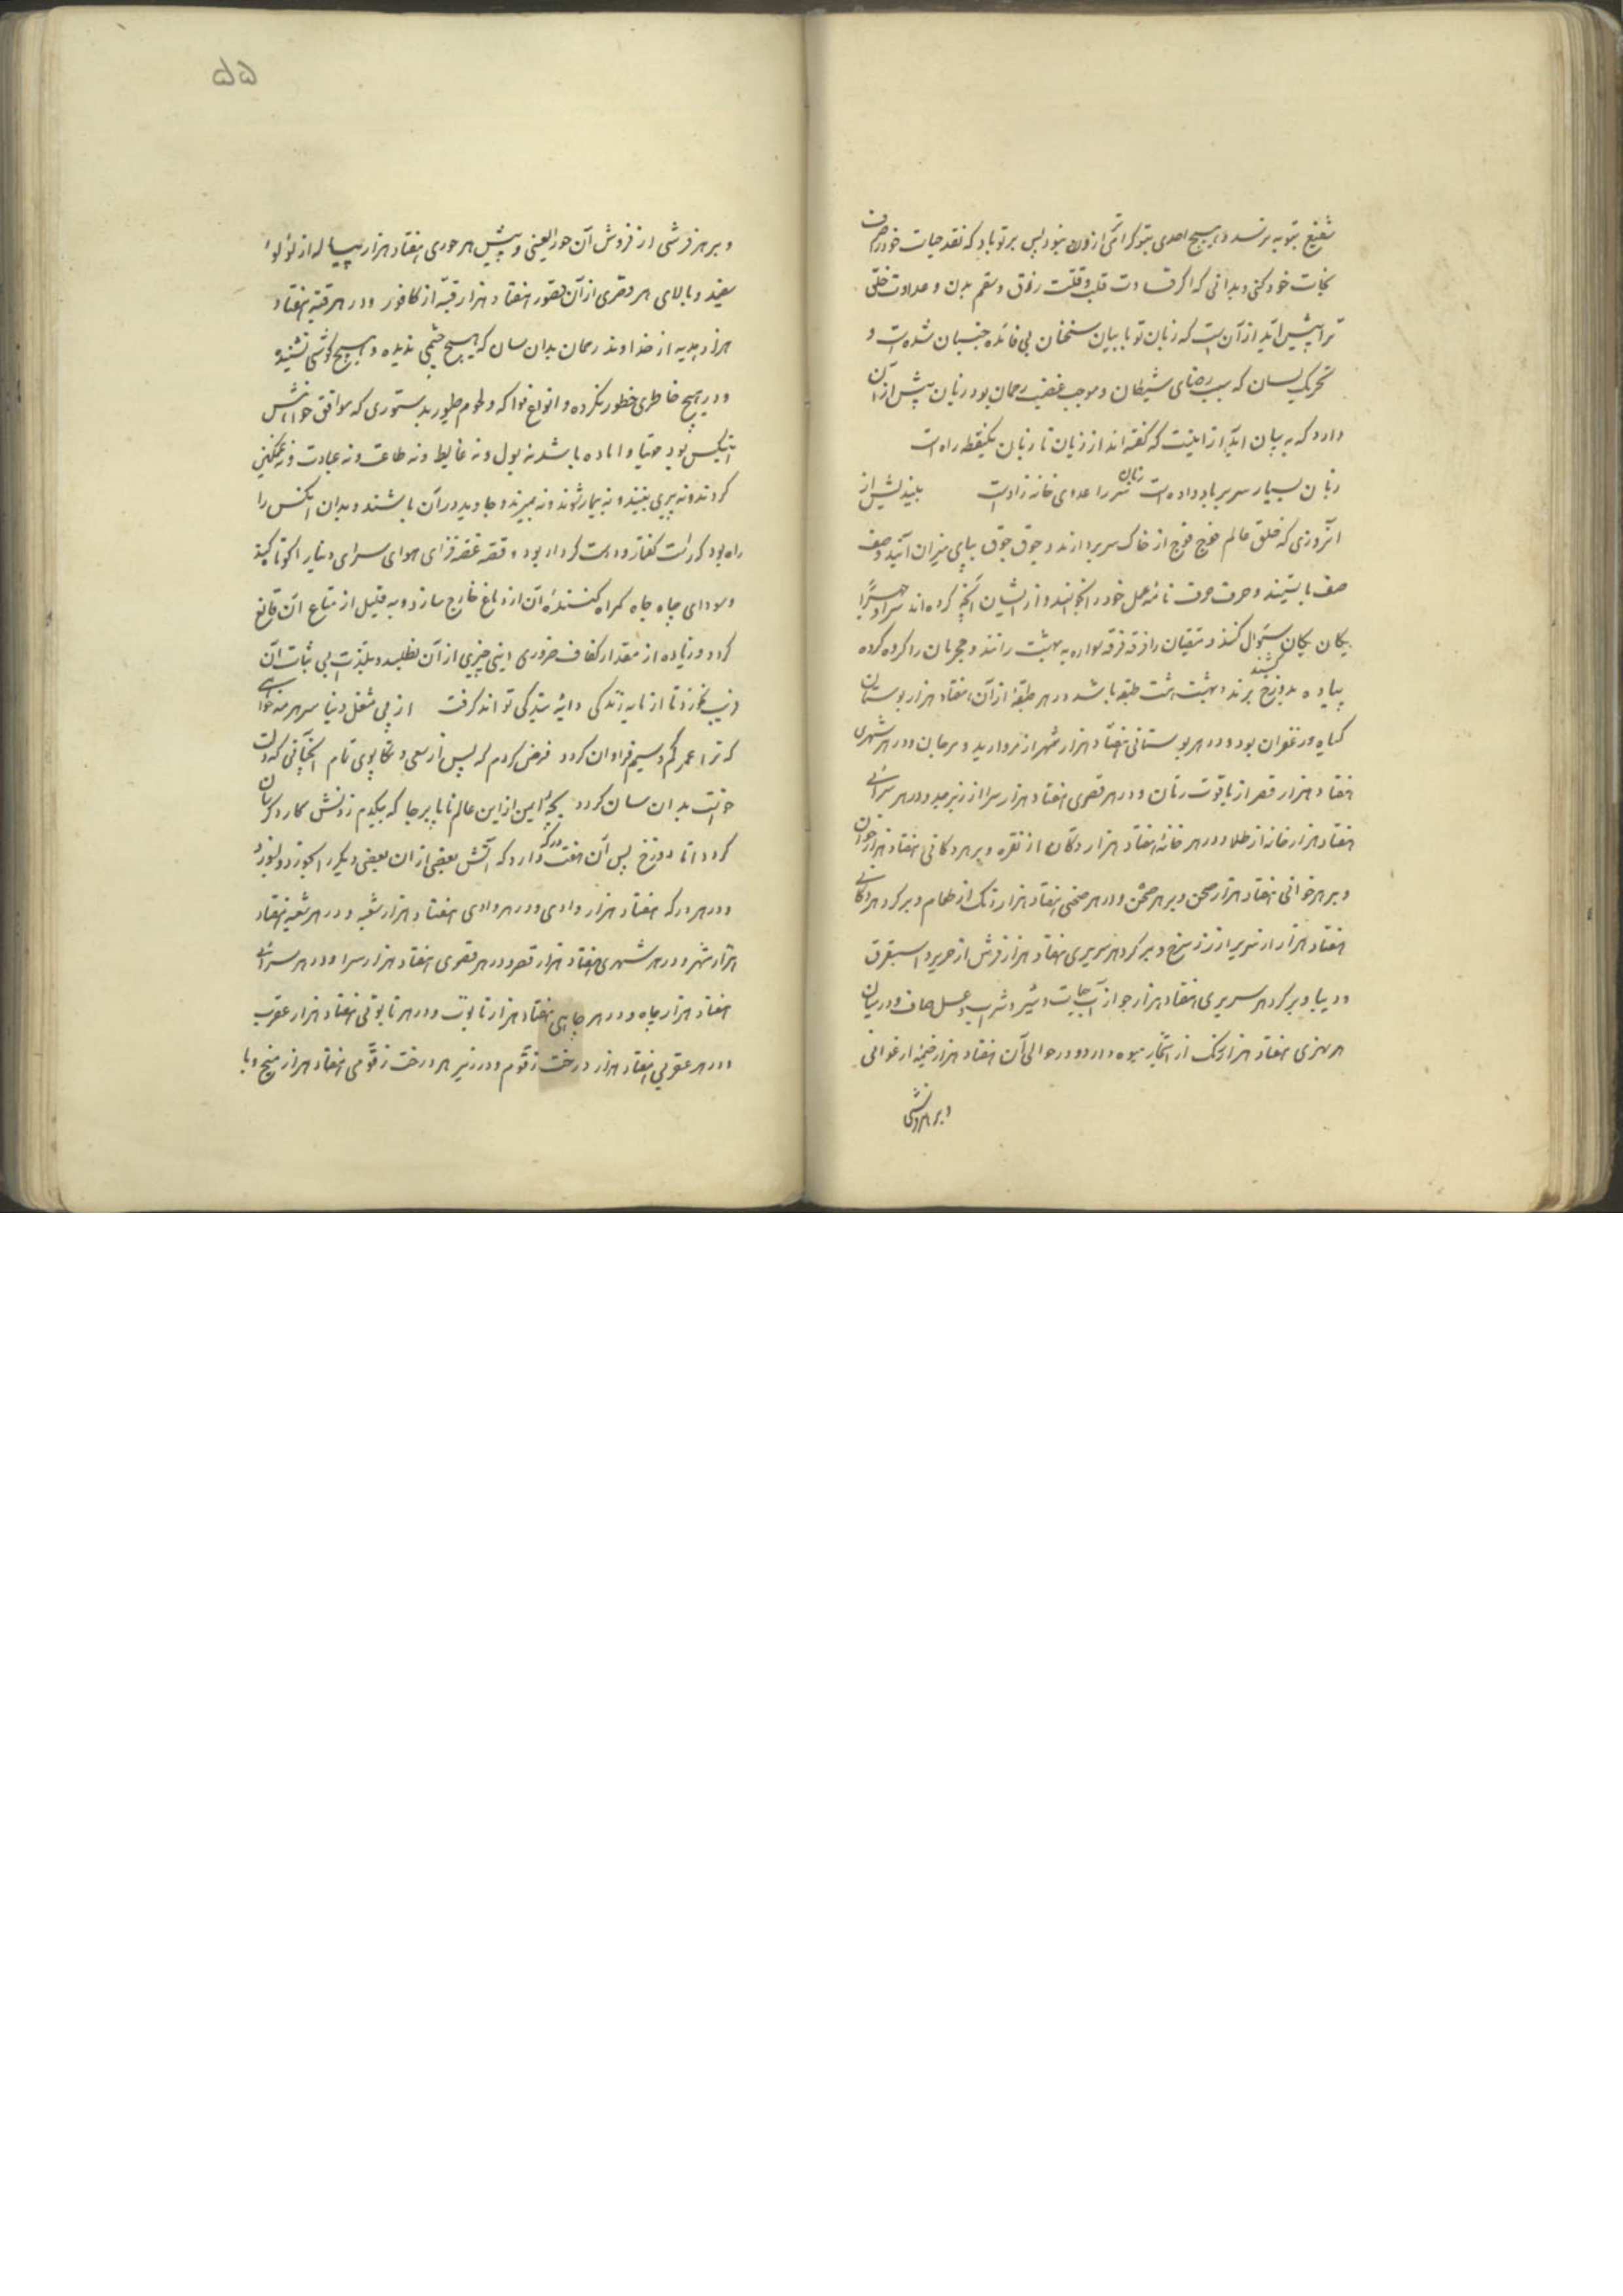 شفیع بتو به نرسد و هیچ احدی بتو کرامتی ارزون نبود پس بر تو باد که نقد حیات خود را صرف
نجات خود کنی و بدانی که اگر قساوت قلب و قلت رزق و سقم بدن و عداوت خلق
ترا پیش آید از آن است که زبان تو با بیان سخنان بی فائده جنبان شده است و
تحریک لسان که سبب رضای شیطان و موجب غضب رحمان بود زیان بیش از آن
دارد که به بیان آید از اینست که گفته اند از زیان تا زبان یکنقطه راه است
زبان بسیار سر بر باد داده است زبان سر را عدوی خانه زاد است بیندیش از
آنروزی که خلق عالم فوج فوج از خاک سر بردارند و جوق جوق بپای میزان آیند و صف
صف بایستند و حرف حرف نامه عمل خود را بخوانند و از ایشان آنچه کرده اند سراً و جهراً
یکان یکان سئوال کنند و متقیان را فرقه فرقه سواره به بهشت رانند و مجرمان را کرده کرده
پیاده بدوزخ کشند برند و بهشت هشت طبقه باشد در هر طبقه از آن هفتاد هزار بوستان
گیاه و زعفران بود و در هر بوستانی هفتاد هزار شهر از مروارید و مرجان و در هر شهری
هفتاد هزار قصر از یاقوت رمان و در هر قصری هفتاد هزار سرا از زبرجد و در هر سرائی
هفتاد هزار خانه از طلا و در هر خانه هفتاد هزار دکان از نقره و بر هر دکانی هفتاد هزار خوان
و بر هر خوانی هفتاد هزار صحن و بر هر صحن و در هر صحنی هفتاد هزار رنگ از طعام و بر گرد هر دکانی
هفتاد هزار از سریر از زر سرخ و بر گرد هر سریری هفتاد هزار فرش از حریر و استبرق
و دیبا و بر گرد هر سریری هفتاد هزار جو از آب حیات و شیر و شراب و عسل صاف و در میان
هر نهری هفتاد هزار رنگ از اشجار میوه دارد و در حوالی آن هفتاد هزار خیمه ارغوانی
و بر هر فرشی
۵۵
و بر هر فرشی از فروش آن حور العینی و پیش هر حوری هفتاد هزار پیاله از لؤلؤ
سفید و بالای هر قصری از آن قصور هفتاد هزار قبه از کافور و در هر قبه هفتاد
هزار هدیه از خداوند رحمان بدان سان که هیچ چشمی ندیده و هیچ گوشی نشنیده
و در هیچ خاطری خطور نکرده و انواع فواکه و لحوم طیور بدستوری که موافق خواهش
آنکس بود مهیا و اماده باشد نه بول و نه غایط و نه طاعت و نه عبادت و نه غمگین
کردند و نه پیری بینند و نه بیمار شوند و نه بمیرند و جاوید در آن باشند و بدان آنکس را
راه بود که راست گفتار و درست کردار بود و قصه غصه فزای هوای سرای دنیا را کوتاه کند
و سودای چاه جاه گمراه کننده آن از دماغ خارج سازد و به قلیل از متاع آن قانع
گردد و زیاده از مقدار کفاف ضروری اینی چیزی از آن نطلبد و بلذت بی ثبات آن
فریب نخورد تا از مایه زندگی دایه بندگی تواند گرفت از پی شغل دنیا سر هر مه خواهی
که ترا عمر کم و سیم فراوان گردد فرض کردم که پس از سعی و تکاپوی تمام آنچنانی که دلت
خواست بدان سان گردد بچه ایمن از این عالم ناپابرجا که بیکدم زدنش کار دگرسان
گردد اما دوزخ پس آن هفت درکه دارد که آتش بعضی از ان بعضی دیگر را بخورد و بسوزد
و در هر درکه هفتاد هزار وادی و در هر وادی هفتاد هزار شعبه و در هر شعبه هفتاد
هزار شهر و در هر شهری هفتاد هزار قصر و در هر قصری هفتاد هزار سرا و در هر سرائی
هفتاد هزار چاه و در هر چاهی هفتاد هزار تابوت و در هر تابوتی هفتاد هزار عقرب
و در هر عقربی هفتاد هزار درخت زقوم و در زیر هر درخت زقومی هفتاد هزار میخ و با